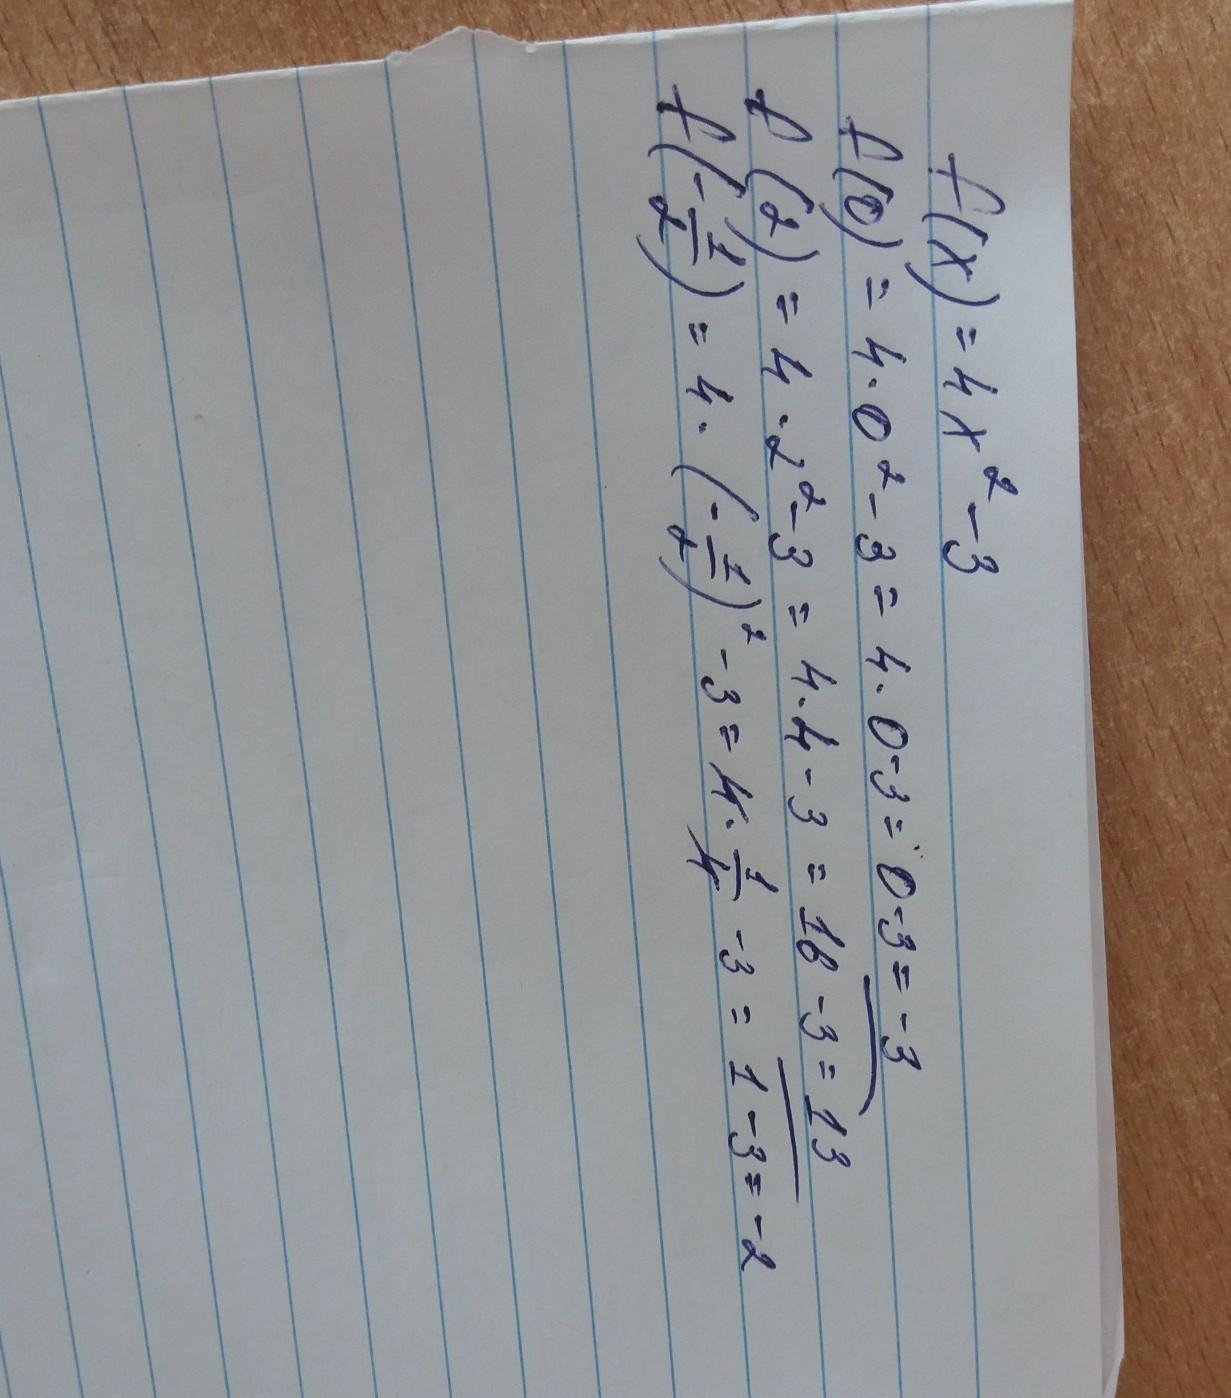 f(x) = 4x² - 3
f(0) = 4 · 0² - 3 = 4 · 0 - 3 = 0 - 3 = -3
f(2) = 4 · 2² - 3 = 4 · 4 - 3 = 16 - 3 = 13
f(-1/2) = 4 · (-1/2)² - 3 = 4 · 1/4 - 3 = 1 - 3 = -2